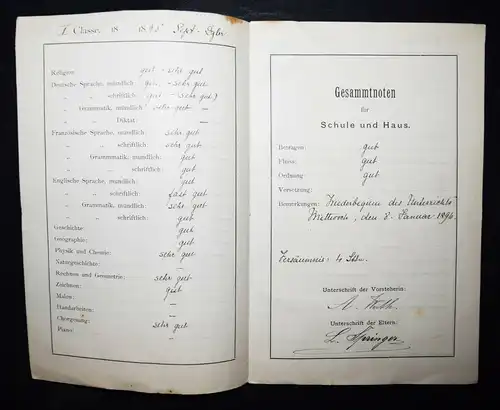 I Classe, 18 1895 Sept - Dezbr
Religion: gut - sehr gut
Deutsche Sprache, mündlich: gut - sehr gut
„ „ schriftlich: gut - sehr gut
„ Grammatik, mündlich: sehr gut —
„ „ Diktat: —
Französische Sprache, mündlich: sehr gut
„ „ schriftlich: sehr gut
„ Grammatik, mündlich: sehr gut
„ „ schriftlich: gut
Englische Sprache, mündlich: gut
„ „ schriftlich: fast gut
„ Grammatik, mündlich: sehr gut
„ „ schriftlich: gut
Geschichte: gut
Geographie: gut
Physik und Chemie: sehr gut
Naturgeschichte: —
Rechnen und Geometrie: sehr gut
Zeichnen: gut
Malen: —
Handarbeiten: —
Chorgesang: —
Piano: sehr gut
—
Gesammtnoten
für
Schule und Haus.
Betragen: gut
Fleiss: gut
Ordnung: gut
Versetzung:
Bemerkungen: Wiederbeginn des Unterrichts
Mittwoch, den 8. Januar 1896.
Versäumnis: 4 Std.
Unterschrift der Vorsteherin:
Unterschrift der Eltern:
L. Springer